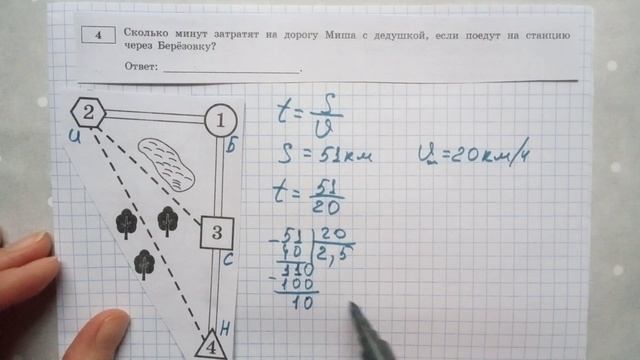 4 Сколько минут затратят на дорогу Миша с дедушкой, если поедут на станцию
через Берёзовку?
Ответ: ____________________.
2
И
1
Б
3
С
Н
4
t = S/V
S = 51км
t = 51/20
- 51 | 20
40 | 2,5
110
- 100
10